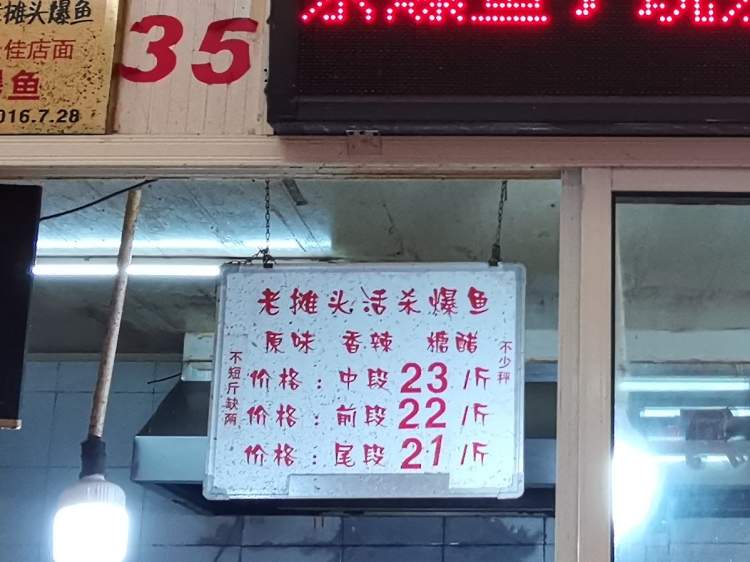 摊头爆鱼
佳店面
鱼
016.7.28
35
老摊头活杀爆鱼
原味 香辣 糖醋
不短斤缺两
不少秤
价格：中段 23 /斤
价格：前段 22 /斤
价格：尾段 21 /斤